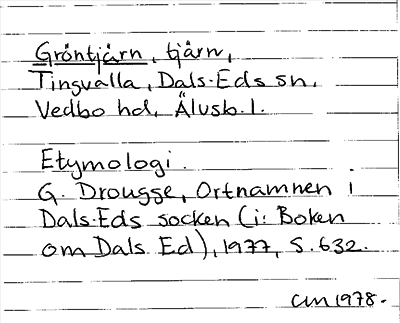 Gröntjärn, tjärn,
Tingvalla, Dals-Eds sn.
Vedbo hd, Älvsb. l.
Etymologi.
G. Drougge, Ortnamnen i
Dals-Eds socken (i: Boken
om Dals Ed), 1977, S. 632.
CM 1978.